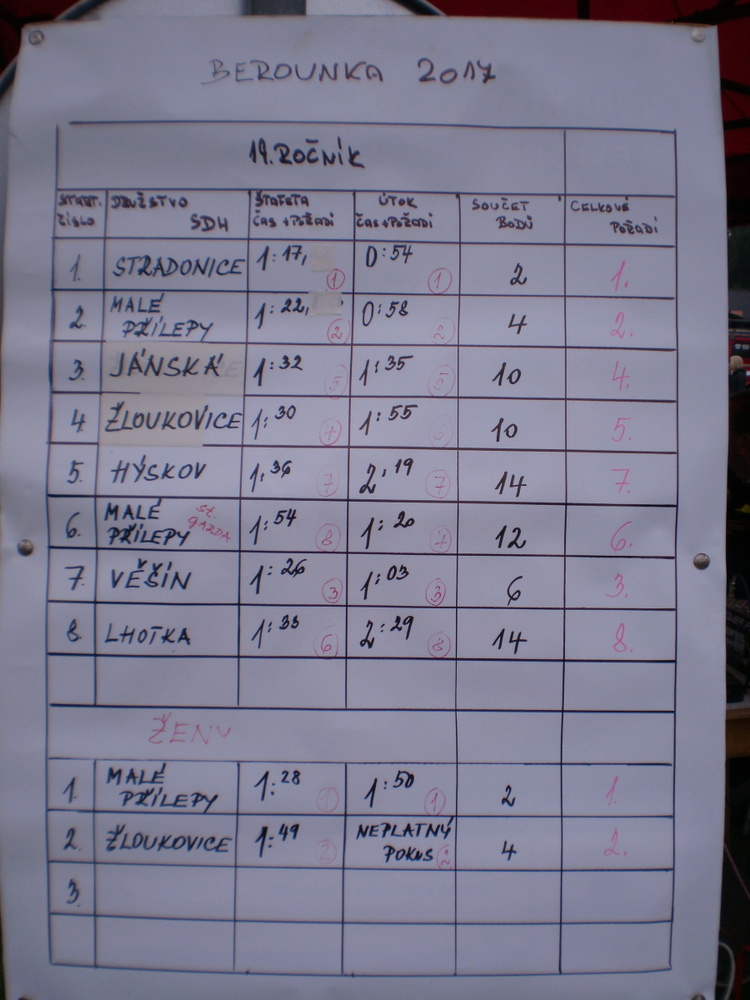 BEROUNKA 2017
19. ROČNÍK
START. ČÍSLO DRUŽSTVO SDH ŠTAFETA ČAS + POŘADÍ ÚTOK ČAS + POŘADÍ SOUČET BODŮ CELKOVÉ POŘADÍ
1. STRADONICE 1:17, 1 0:54 1 2 1.
2. MALÉ PŘÍLEPY 1:22, 2 0:58 2 4 2.
3. JÁNSKÁ 1:32 5 1:35 5 10 4.
4 ŽLOUKOVICE 1:30 4 1:55 6 10 5.
5. HÝSKOV 1:36 7 2,19 7 14 7.
6. MALÉ PŘÍLEPY st. GARDA 1:54 8 1:20 4 12 6.
7. VĚŠÍN 1:26 3 1:03 3 6 3.
8. LHOTKA 1:33 6 2:29 8 14 8.
ŽENY
1. MALÉ PŘÍLEPY 1:28 1 1:50 1 2 1.
2. ŽLOUKOVICE 1:49 2 NEPLATNÝ POKUS 2 4 2.
3.